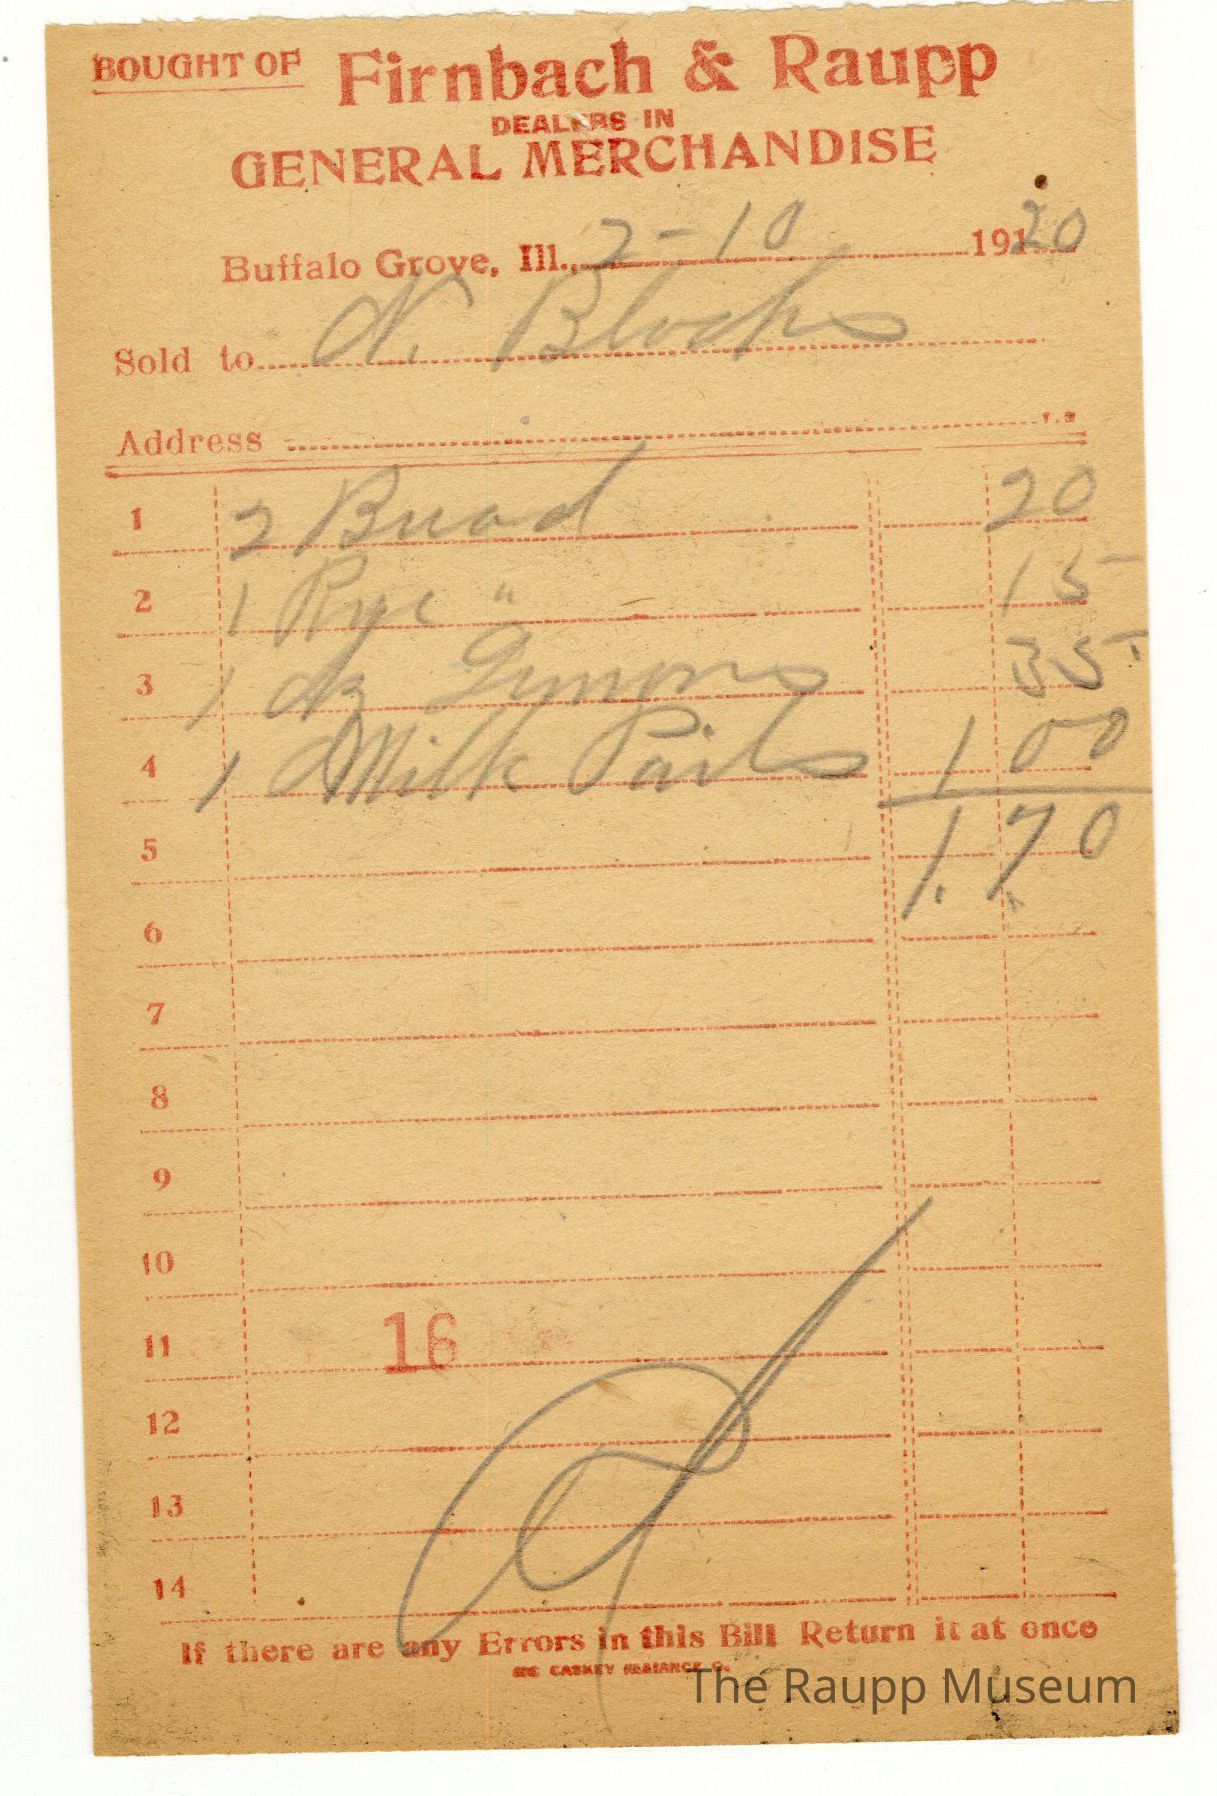 BOUGHT OF Firnbach & Raupp
DEALERS IN
GENERAL MERCHANDISE
Buffalo Grove, Ill., 2-10 1920
Sold to N. Blocks
Address
1 2 Bread 20
2 1 Rye " 15
3 1 dz 35
4 1 Milk Pails 1 00
5 1.70
6
7
8
9
10
11 16
12
13
14
If there are any Errors in this Bill Return it at once
The Raupp Museum